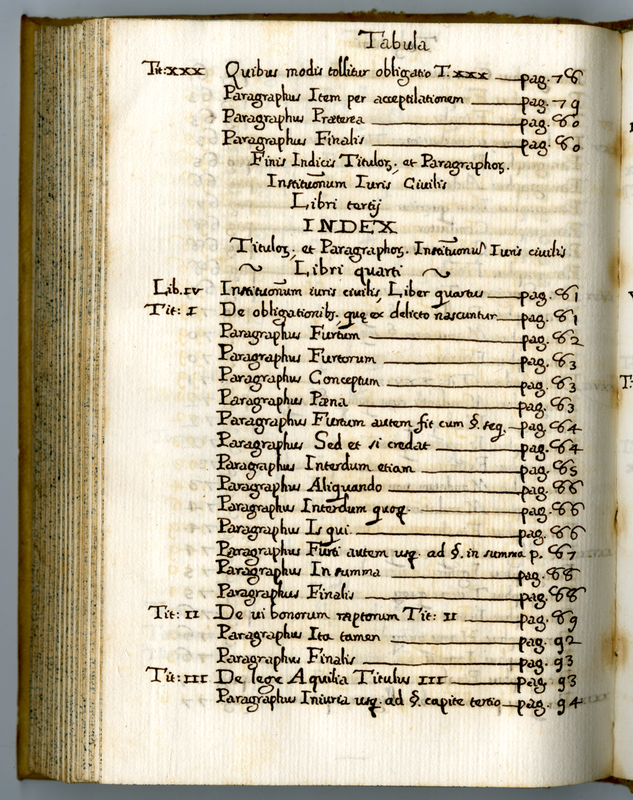 Tabula
Tit: XXX Quibus modis tollitur obligatio T. XXX pag. 78
Paragraphus Item per acceptilationem pag. 79
Paragraphus Præterea pag. 80
Paragraphus Finalis pag. 80
Finis Indicis Tituloꝝ, et Paragraphoꝝ.
Institūonum Iuris Civilis
Libri tertij
INDEX
Tituloꝝ, et Paragraphoꝝ. Institūonū Iuris civilis
~ Libri quarti ~
Lib. IV Institūonum iuris civilis, Liber quartus pag. 81
Tit: I De obligationibꝫ, quę ex delicto nascuntur pag. 81
Paragraphus Furtum pag. 82
Paragraphus Furtorum pag. 83
Paragraphus Conceptum pag. 83
Paragraphus Pæna pag. 83
Paragraphus Furtum autem fit cum §. seq. pag. 84
Paragraphus Sed et si credat pag. 84
Paragraphus Interdum etiam pag. 85
Paragraphus Aliquando pag. 86
Paragraphus Interdum quoqꝫ. pag. 86
Paragraphus Is qui pag. 86
Paragraphus Furti autem usqꝫ. ad §. in summa p. 87
Paragraphus In summa pag. 88
Paragraphus Finalis pag. 88
Tit: II De ui bonorum raptorum Tit: II pag. 89
Paragraphus Ita tamen pag. 92
Paragraphus Finalis pag. 93
Tit: III De lege Aquilia Titulus III pag. 93
Paragraphus Iniuria usqꝫ. ad §. capite tertio pag. 94